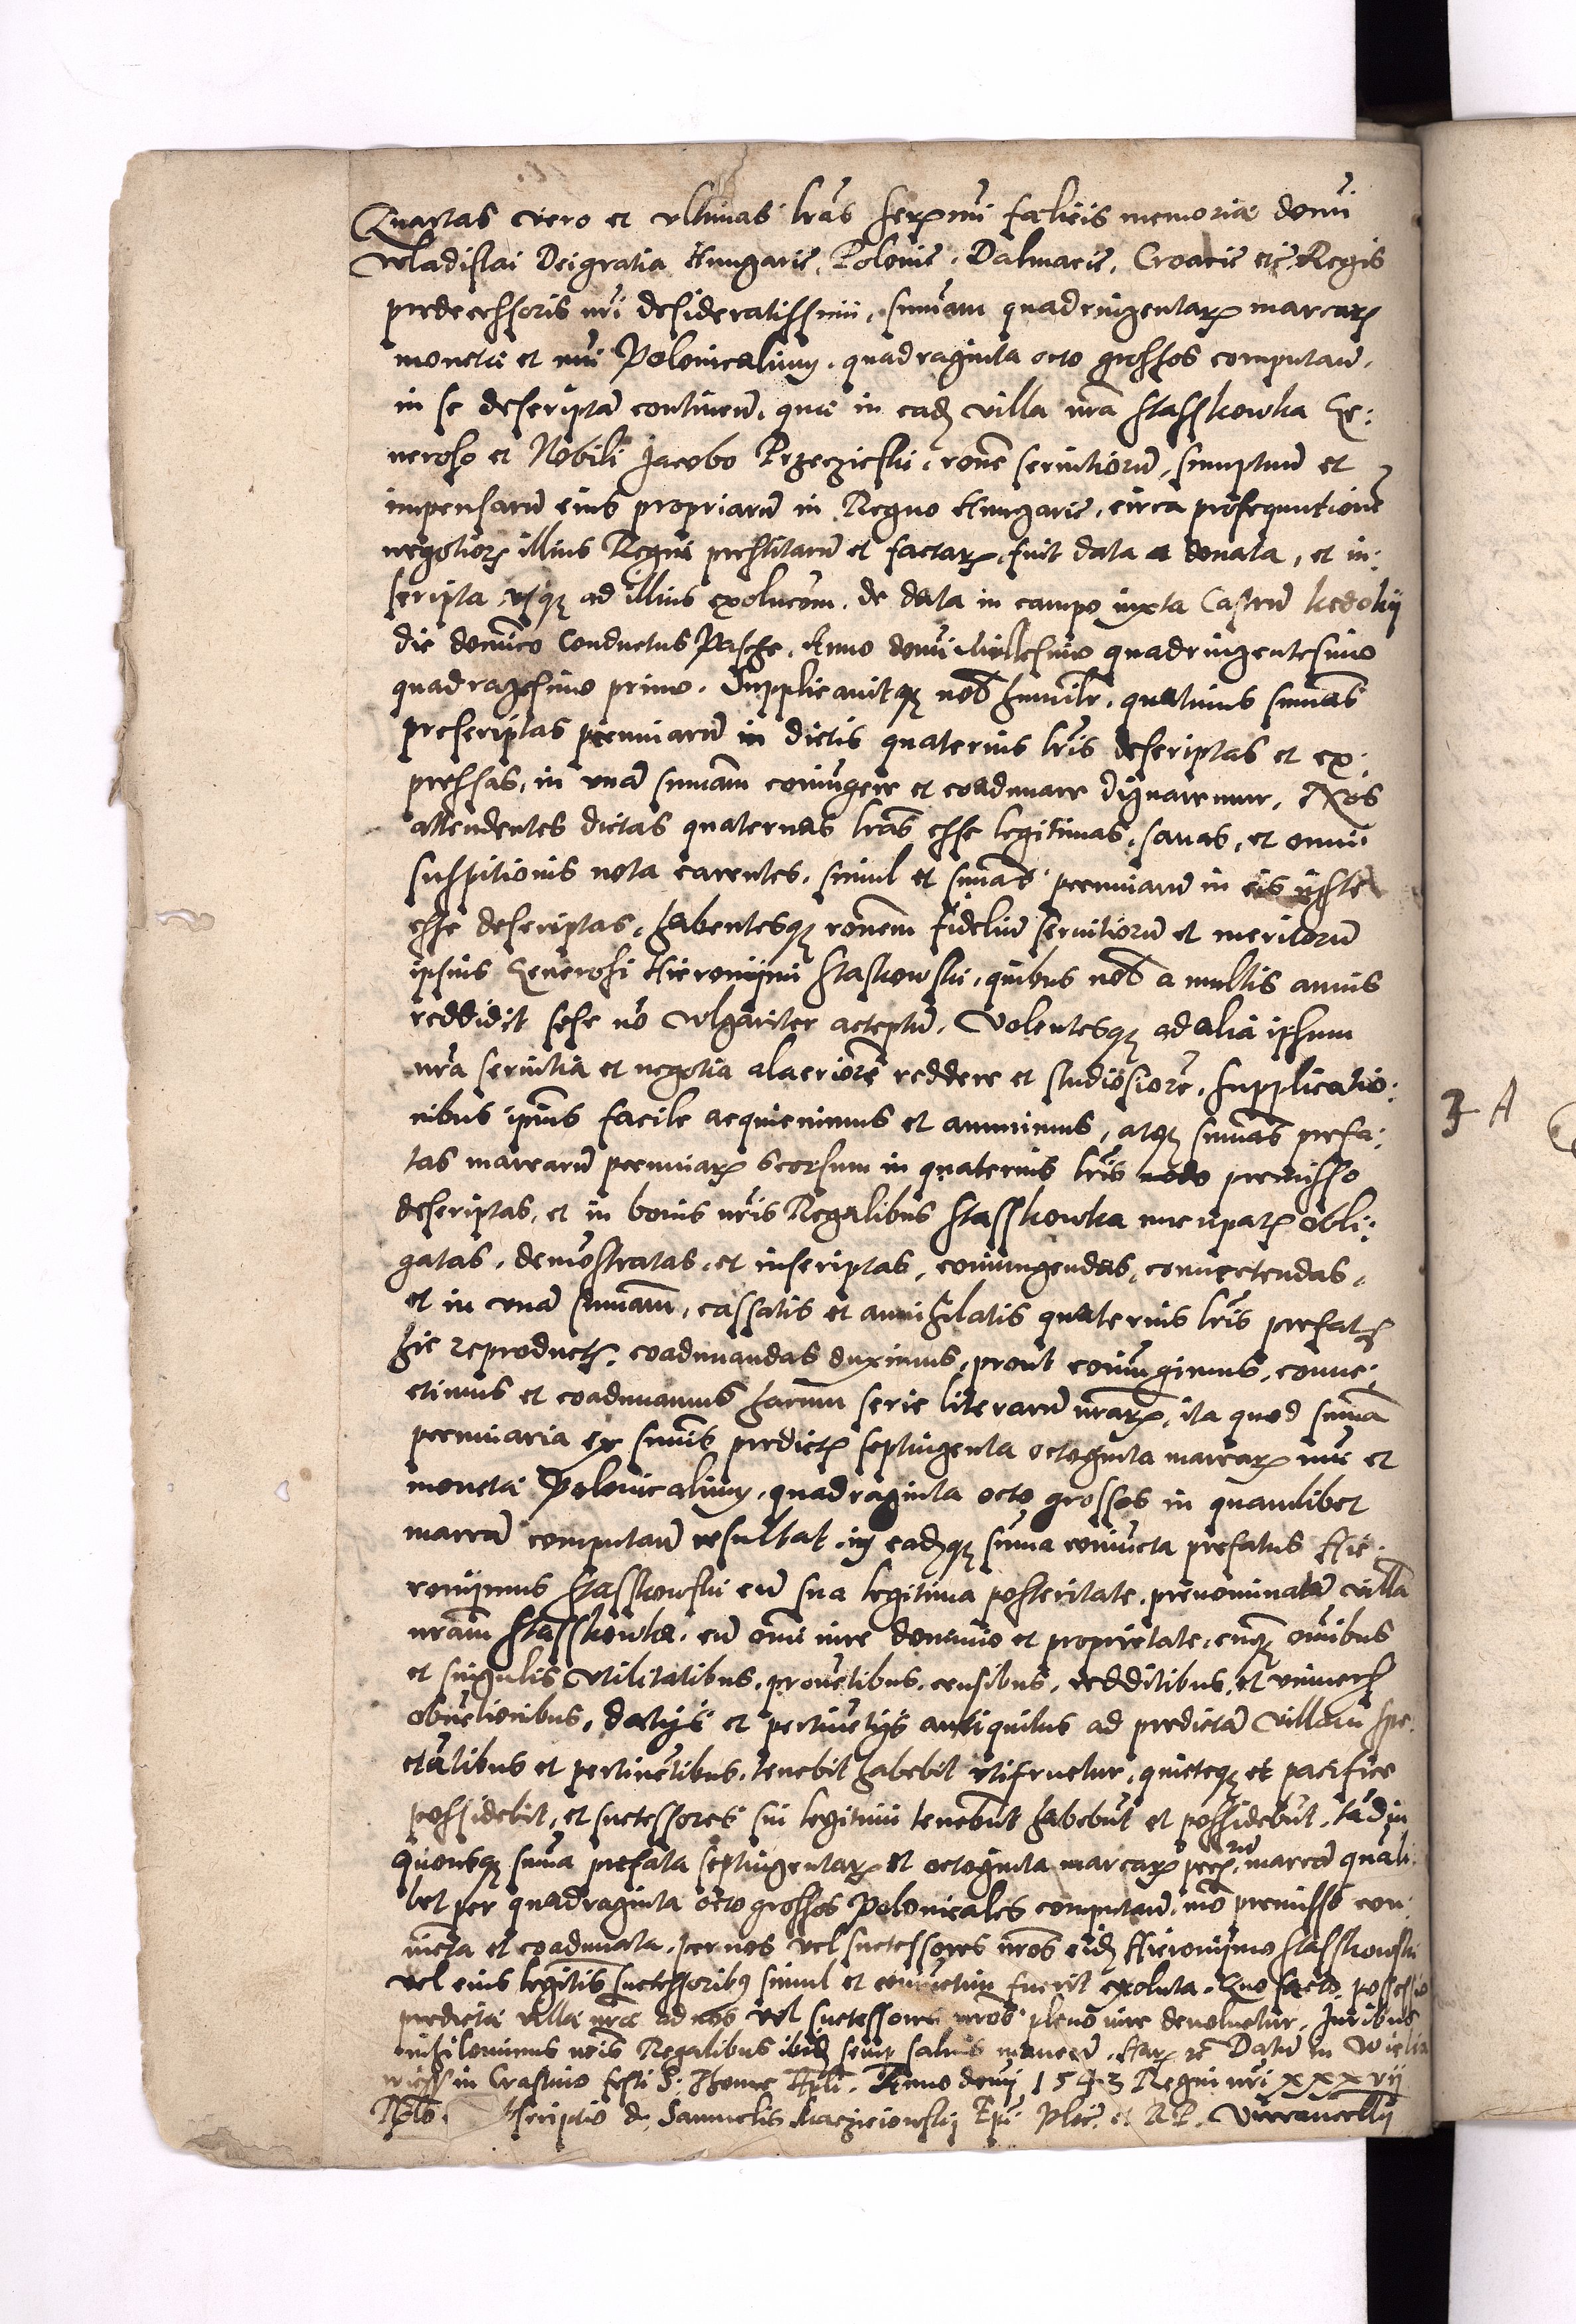 Quartas vero et ultimas lras serenmi felicis memoriae domi
Wladislai Dei gratia Hungarie, Polonie, Dalmacie, Croacie etc. Regis
predecessoris nri desideratissimi, sumam quadringentarum marcarum
monetae et nui Polonicalium, quadraginta octo grossos computan.
in se descriptam continen. que in eadem villa nra Stasskowka Ge:
neroso et Nobili Jacobo Przeczicski, rone servitiorum, sumptuum et
impensarum eius propriarum in Regno Hungarie, circa prosequutionem
negotiorum illius Regni prestitarum et factarum, fuit data a donata, et in:
scripta, usque ad illius exolucom. de data in campo iuxta Castrum
die dominico Conductus Pasche, Anno domi Millesimo quadringentesimo
quadragesimo primo. Supplicavitque nob humilr, quatenus sumas
prescriptas pecuniarum in dictis quaternis lris descriptas et ex:
pressas, in unam sumam coniungere et coadunare dignaremur. Nos
attendentes dictas quaternas lras esse legitimas, sanas, et omni
suspitionis nota carentes, simul et sumas pecuniarum in eis iuste
esse descriptas, habentesque ronem fidelium servitiorum et meritorum
ipsius Generosi Hieronymi Staskowski, quibus nob a multis annis
reddidit sese no vulgariter acceptum, Volentesque ad alia ipsum
nra servitia et negotia alacriorem reddere et studiosiorem, supplicatio:
nibus ipius facile acquievimus et annuimus, atque sumas prefa:
tas marcarum pecuniarum seorsum in quaternis lris modo premisso
descriptas, et in bonis nris Regalibus Stasskowka nuncupatis obli:
gatas, demostratas, et inscriptas, coniungendas, connectendas,
et in unam sumam, cassatis et annihilatis quaternis lris prefatis
hic reproductis, coadunandas duximus, prout coniungimus, conne:
ctimus et coadunamus harum serie literarum nrarum, ita quod suma
pecuniaria ex sumis predictis septingenta octoginta marcarum nui et
monetae Polonicalium, quadraginta octo grossos in quamlibet
marcam computan resultat, in eademque suma coniuncta prefatus Hie:
ronymus Stasskowski cum sua legitima posteritate, prenominatam villam
nram Stasskowka, cum omi iure dominio et proprietate, cumque omibus
et singulis utilitatibus, provetibus, censibus, redditibus, et universis
obvetionibus, datys et pertinetys antiquitus ad predictam villam spe:
ctatibus et pertinetibus, tenebit habebit utifruetur, quieteque et pacifice
possidebit, et successores sui legitimi tenebut habebut et possidebut, tadiu
quousque suma prefata septingentarum et octoginta marcarum pec:rum marcam quali:
bet per quadraginta octo grossos Polonicales computan, mo premisso con:
iucta et coadunata, per nos vel successores nros eidem Hieronymo Stasskowski
vel eius legitis successoribus simul et coniuctim fuerit exoluta. Quo facto, possessio
predictae villae nrae ad nos vel successores nros pleno iure devoluetur. Iuribus
nihilominus nris Regalibus ibidem semp salvis manen. Harum etc. Datum in Wielia
in Crastino festi S: Thome Apli. Anno domi 1543 Regni nri xxxvii
scriptio d. Samuelis Maczieiowski Epi Ploc: et R P. Vicecancellii
3 A